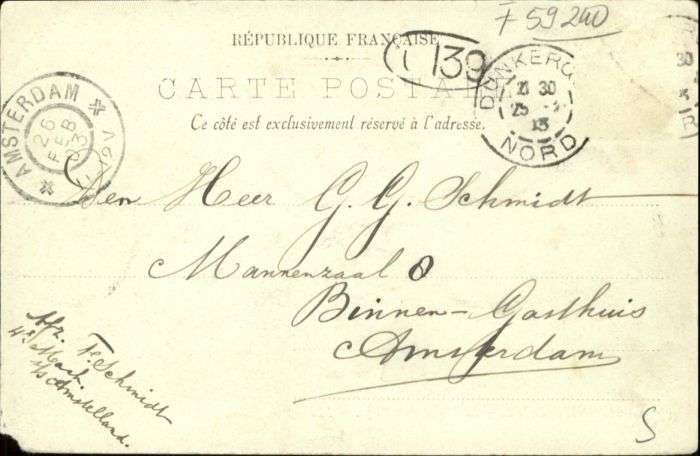 F 59240
RÉPUBLIQUE FRANÇAISE
139
CARTE POSTA
Ce côté est exclusivement réservé à l'adresse.
DUNKERQ
30
25
NORD
AMSTERDAM
26 FEB 03
Den Heer G. G. Schmidt
Mannenzaal 8
Binnen-Gasthuis
Amsterdam
Afz. Fe. Schmidt
4e Mach.
s/s Amstelland.
S